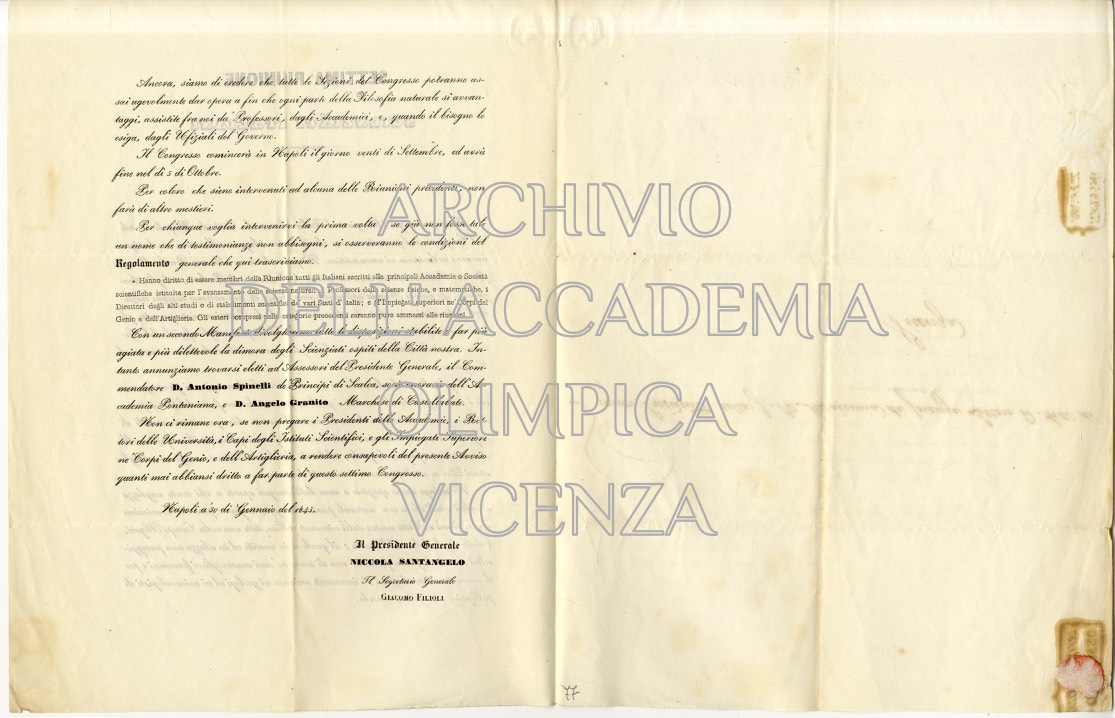 Ancora, siamo di credere che tutte le Sezioni del Congresso potranno as-
sai agevolmente dar opera a fin che ogni parte della Filosofia naturale si avvan-
taggi, assistite fra noi da' Professori, dagli Accademici, e, quando il bisogno lo
esiga, dagli Ufiziali del Governo.
Il Congresso comincerà in Napoli il giorno venti di Settembre, ed avrà
fine nel dì 5 di Ottobre.
Per coloro che sieno intervenuti ad alcuna delle Riunioni precedenti, non
farà di altro mestieri.
Per chiunque voglia intervenirvi la prima volta se già non fosse tale
un nome che di testimonianze non abbisogni, si osserveranno le condizioni del
Regolamento generale che qui trascriviamo.
« Hanno diritto di essere membri della Riunione tutti gli Italiani ascritti alle principali Accademie o Società
scientifiche istituite per l'avanzamento delle scienze naturali, i Professori delle scienze fisiche, e matematiche, i
Direttori degli alti studi o di stabilimenti scientifici de' vari Stati d'Italia; e gl'Impiegati superiori ne' Corpi del
Genio e dell'Artiglieria. Gli esteri compresi nelle categorie precedenti saranno pure ammessi alle riunioni.
Con un secondo Manifesto divolgheremo tutte le disposizioni stabilite a far più
agiata e più dilettevole la dimora degli Scienziati ospiti della Città nostra. In-
tanto annunziamo trovarsi eletti ad Assessori del Presidente Generale, il Com-
mendatore D. Antonio Spinelli de' Principi di Scalea, socio onorario dell'Ac-
cademia Pontaniana, e D. Angelo Granito Marchese di Castellabate.
Non ci rimane ora, se non pregare i Presidenti delle Accademie, i Ret-
tori delle Università, i Capi degli Istituti Scientifici, e gli Impiegati Superiori
ne' Corpi del Genio, e dell'Artiglieria, a rendere consapevoli del presente Avviso
quanti mai abbiansi dritto a far parte di questo settimo Congresso.
Napoli a' 30 di Gennaio del 1845.
Il Presidente Generale
NICCOLA SANTANGELO
Il Segretario Generale
GIACOMO FILIOLI
77
ARCHIVIO
DELL'ACCADEMIA
OLIMPICA
VICENZA